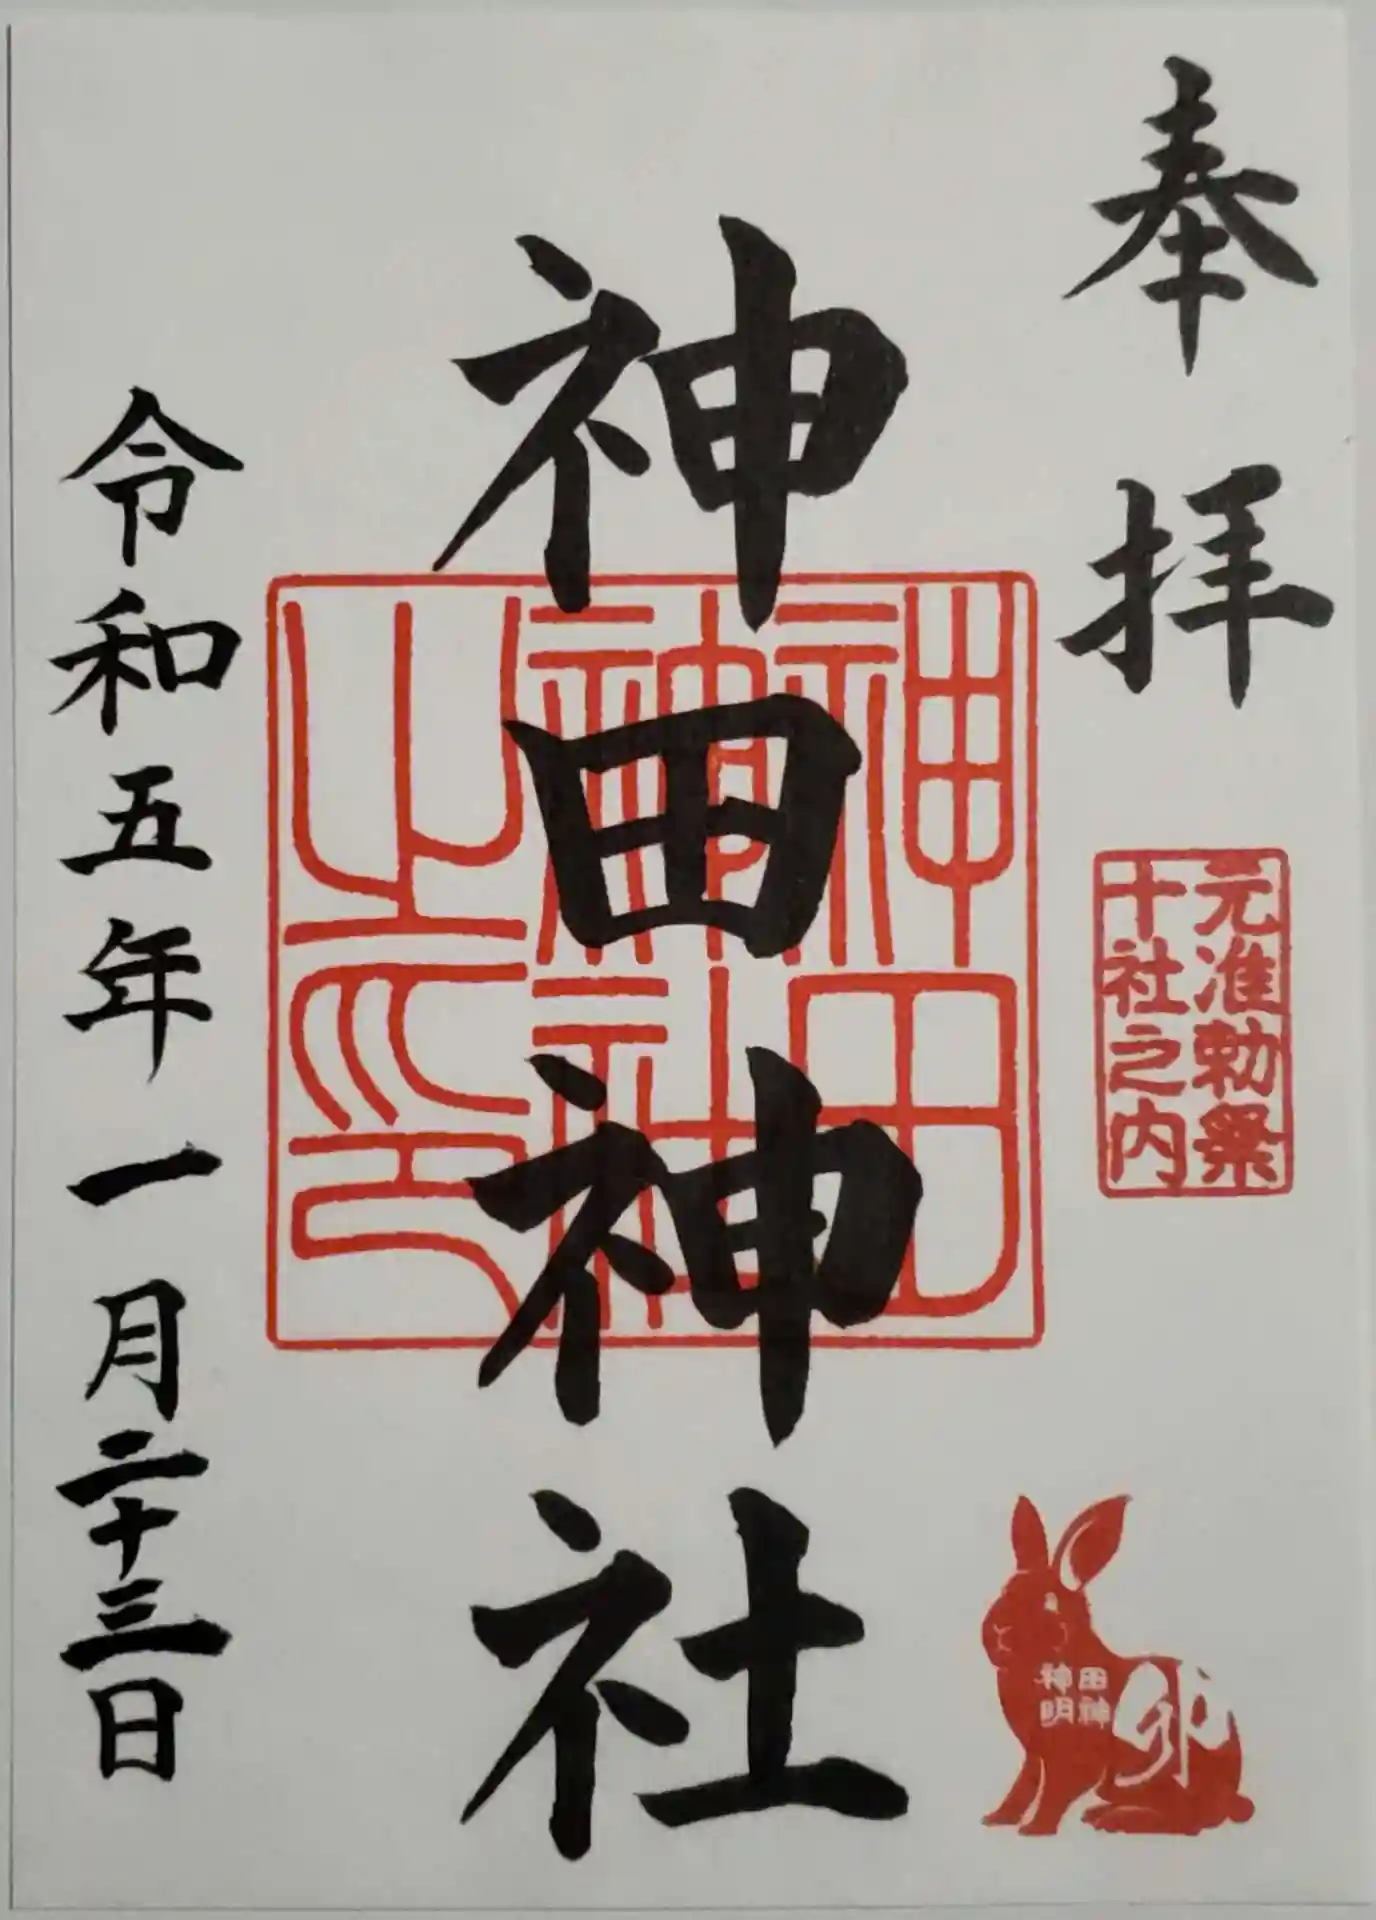 奉拝
元准勅祭
十社之内
神田神社
神田
神社
之印
田神
神明
卯
令和五年一月二十三日